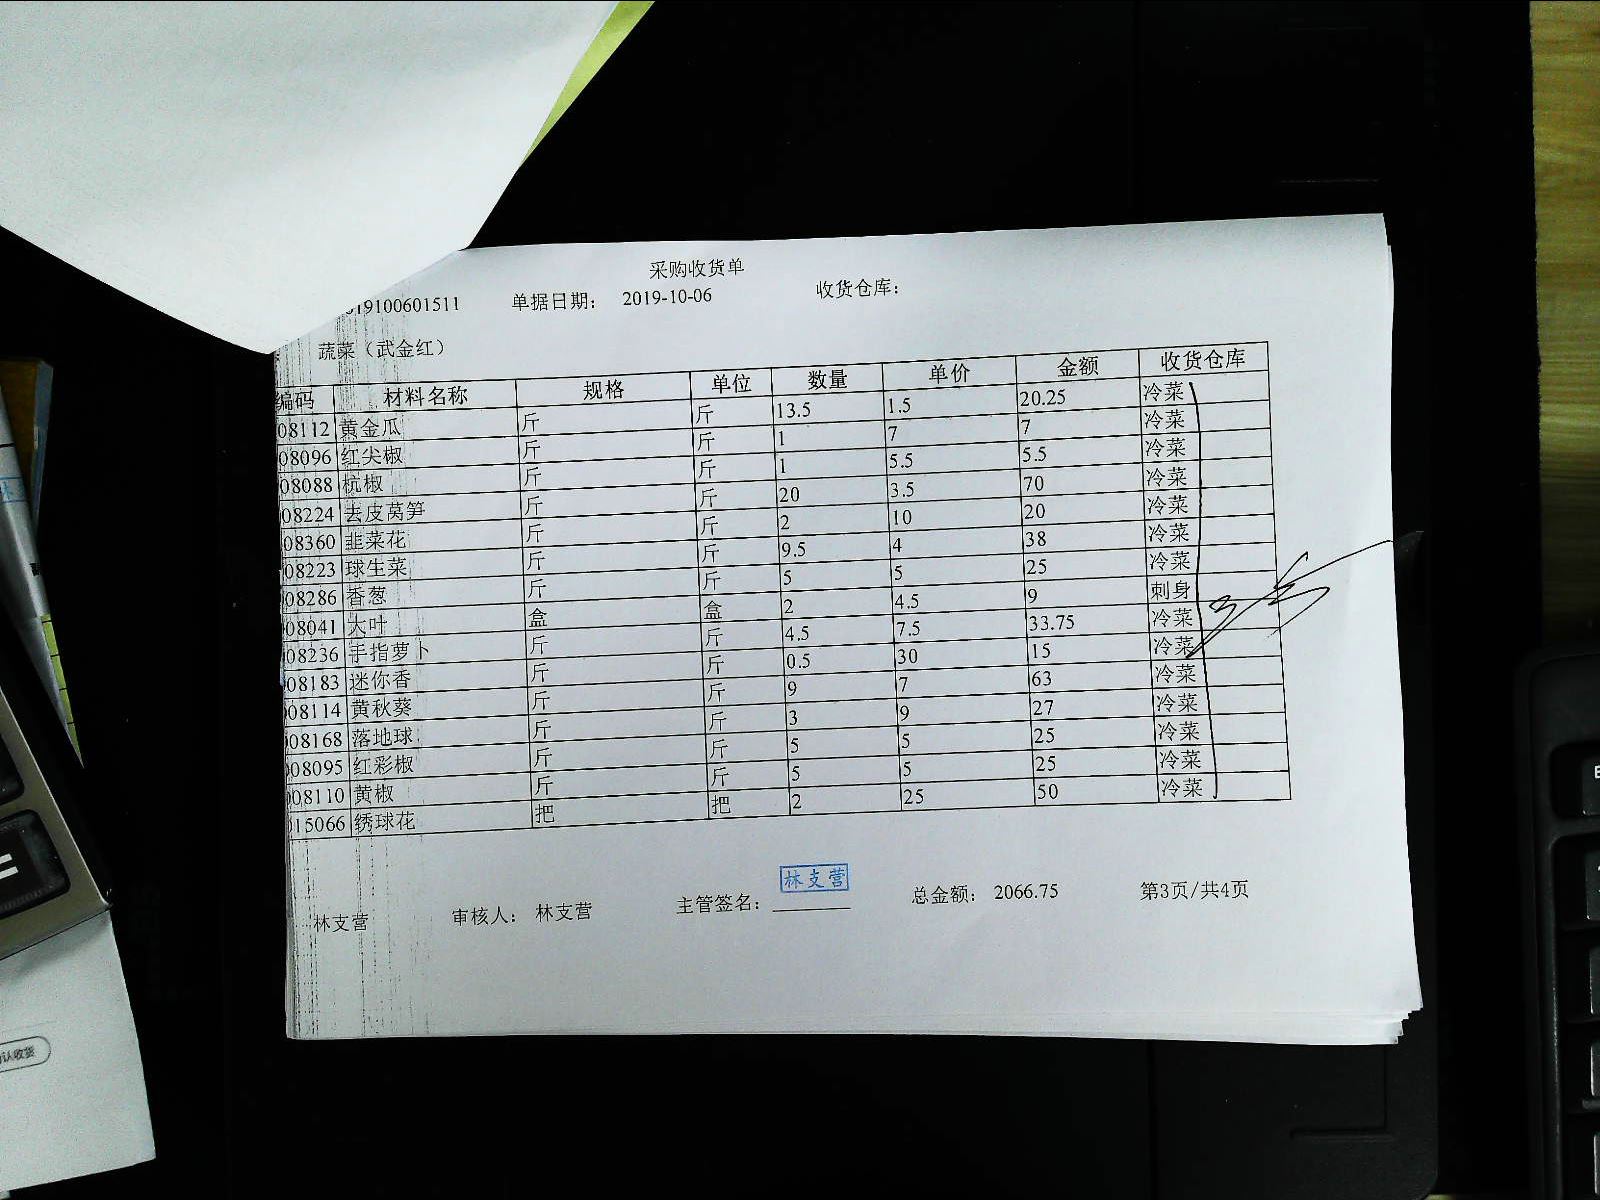 采购收货单
19100601511 单据日期: 2019-10-06 收货仓库:
蔬菜（武金红）
编码 材料名称 规格 单位 数量 单价 金额 收货仓库
08112 黄金瓜 斤 斤 13.5 1.5 20.25 冷菜
08096 红尖椒 斤 斤 1 7 7 冷菜
08088 杭椒 斤 斤 1 5.5 5.5 冷菜
08224 去皮莴笋 斤 斤 20 3.5 70 冷菜
08360 韭菜花 斤 斤 2 10 20 冷菜
08223 球生菜 斤 斤 9.5 4 38 冷菜
08286 香葱 斤 斤 5 5 25 冷菜
08041 大叶 盒 盒 2 4.5 9 刺身
08236 手指萝卜 斤 斤 4.5 7.5 33.75 冷菜
08183 迷你香 斤 斤 0.5 30 15 冷菜
08114 黄秋葵 斤 斤 9 7 63 冷菜
08168 落地球 斤 斤 3 9 27 冷菜
08095 红彩椒 斤 斤 5 5 25 冷菜
08110 黄椒 斤 斤 5 5 25 冷菜
15066 绣球花 把 把 2 25 50 冷菜
林支营 审核人: 林支营 主管签名: 林支营 总金额: 2066.75 第3页/共4页
认收货